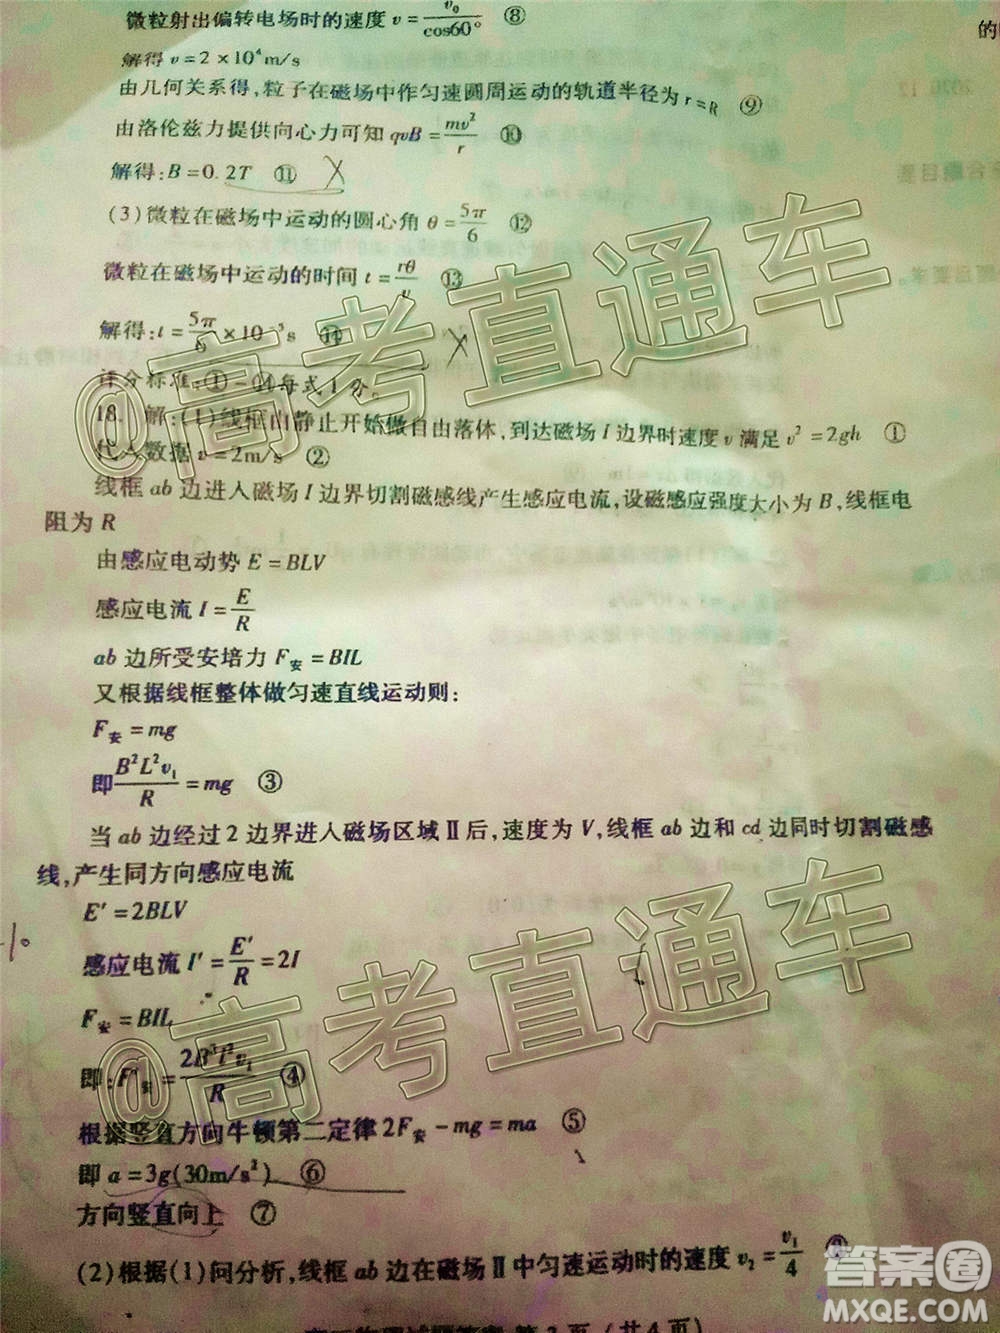 微粒射出偏转电场时的速度 v=v₀/cos60° ⑧
的
解得 v=2×10⁴m/s
由几何关系得,粒子在磁场中作匀速圆周运动的轨道半径为 r=R ⑨
由洛伦兹力提供向心力可知 qvB=mv²/r ⑩
解得:B=0.2T ⑪
(3)微粒在磁场中运动的圆心角 θ=5π/6 ⑫
微粒在磁场中运动的时间 t=rθ/v ⑬
解得:t=5π/ ×10⁻⁵s ⑭
评分标准:①-⑭每式1分。
18. 解:(1)线框由静止开始做自由落体,到达磁场 I 边界时速度 v 满足 v²=2gh ①
代入数据 v=2m/s ②
线框 ab 边进入磁场 I 边界切割磁感线产生感应电流,设磁感应强度大小为 B,线框电
阻为 R
由感应电动势 E=BLV
感应电流 I=E/R
ab 边所受安培力 F安=BIL
又根据线框整体做匀速直线运动则:
F安=mg
即B²L²v₁/R=mg ③
当 ab 边经过 2 边界进入磁场区域Ⅱ后,速度为 V,线框 ab 边和 cd 边同时切割磁感
线,产生同方向感应电流
E'=2BLV
感应电流 I'=E'/R=2I
F安=BIL
即:F安= ④
根据竖直方向牛顿第二定律 2F安-mg=ma ⑤
即 a=3g(30m/s²) ⑥
方向竖直向上 ⑦
(2)根据(1)问分析,线框 ab 边在磁场Ⅱ中匀速运动时的速度 v₂=v₁/4
页(共4页)
@高考直通车
@高考直通车
答案圈
MXQE.COM